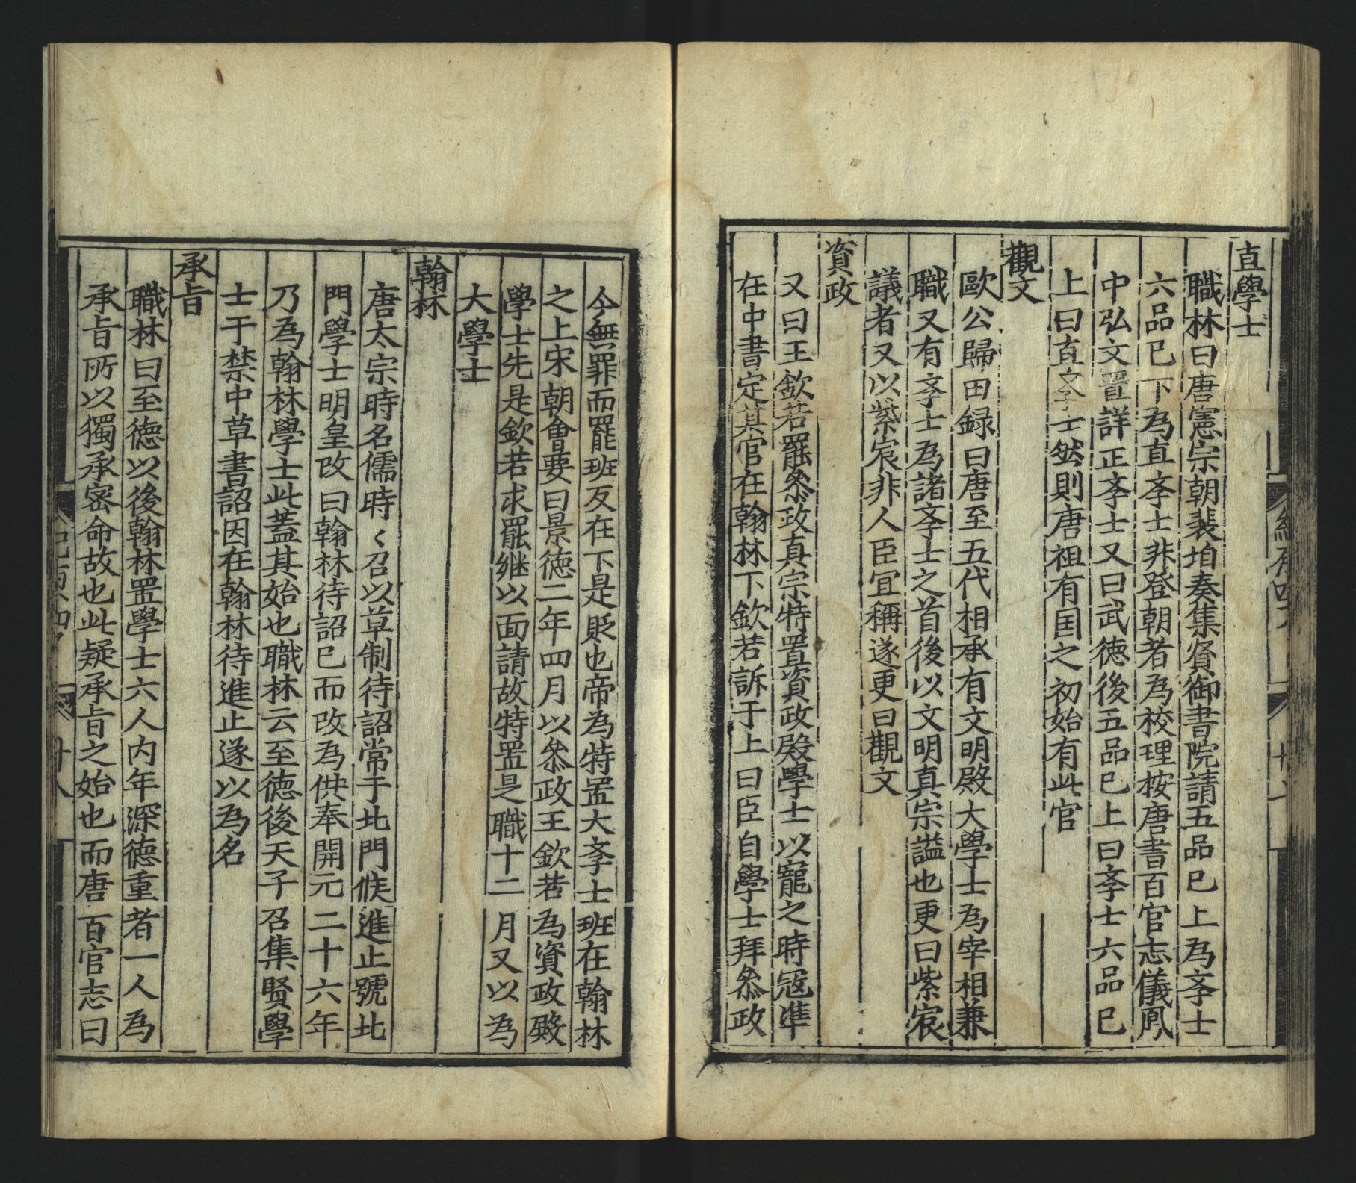 直學士
職林曰唐憲宗朝裴垍奏集賢御書院請五品已上為斈士
六品已下為直斈士非登朝者為校理按唐書百官志儀鳳
中弘文置詳正斈士又曰武徳後五品已上曰斈士六品已
上曰直斈士然則唐祖有国之初始有此官
觀文
歐公歸田録曰唐至五代相承有文明殿大學士為宰相兼
職又有斈士為諸斈士之首後以文明真宗謚也更曰紫宸
議者又以紫宸非人臣宜稱遂更曰觀文
資政
又曰王欽若罷叅政真宗特置資政殿學士以寵之時冦凖
在中書定其官在翰林下欽若訴于上曰臣自學士拜叅政
今無罪而罷班反在下是貶也帝為特置大斈士班在翰林
之上宋朝會要曰景徳二年四月以叅政王欽若為資政殿
學士先是欽若求罷継以面請故特置是職十二月又以為
大學士
翰林
唐太宗時名儒時〻召以草制待詔常于北門候進止號北
門學士明皇改曰翰林待詔已而改為供奉開元二十六年
乃為翰林學士此蓋其始也職林云至徳後天子召集賢學
士于禁中草書詔因在翰林待進止遂以為名
承旨
職林曰至徳以後翰林置學士六人内年深徳重者一人為
承旨所以獨承密命故也此疑承旨之始也而唐百官志曰